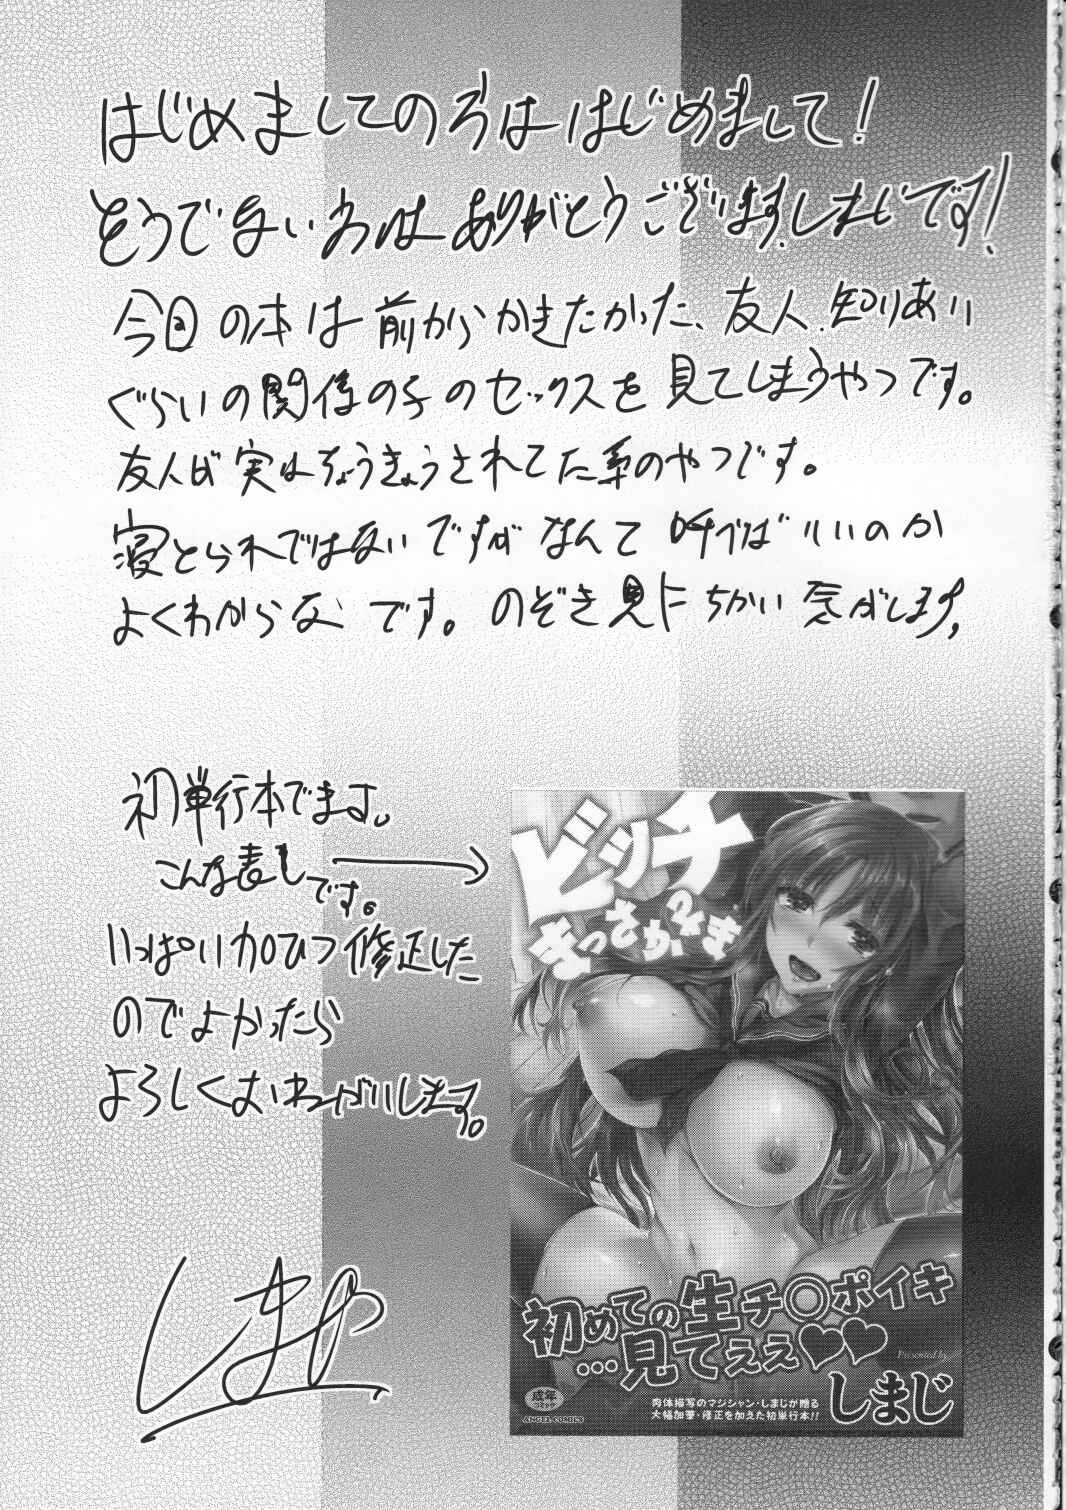 はじめましての方ははじめまして!
そうでない方はありがとうございます。しまじです!
今回の本は前からかきたかった、友人、知りあい
ぐらいの関係の子のセックスを見てしまうやつです。
友人が実はちょうきょうされてた系のやつです。
寝とられではないですがなんて呼べばいいのか
よくわからないです。のぞき見にちかい気がします。
初単行本でます。
こんな表しです。
いっぱい加ひつ修正した
のでよかったら
よろしくおねがいします。
しまじ
ビッチ
まっさかさま
初めての生チ◯ポイキ
…見てぇぇ♥♥
Presented by
しまじ
成年
コミック
ANGEL COMICS
肉体描写のマジシャン・しまじが贈る
大幅加筆・修正を加えた初単行本!!